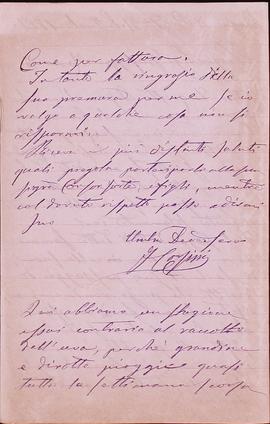 Come per fattura.
Intanto la ringrazio della
sua premura per me se io
valgo a qualche cosa non si
risparmi.
Riceva i più distinti saluti
quali pregola parteciparli alla sua
Consorte e figli, mentre
col dovuto rispetto passo a dirmi
suo
Umil. Dev. Servo
Qui abbiamo una stagione
assai contraria al raccolto
dell'uva, perchè grandine
e dirotte pioggie quasi
tutta la settimana scorsa